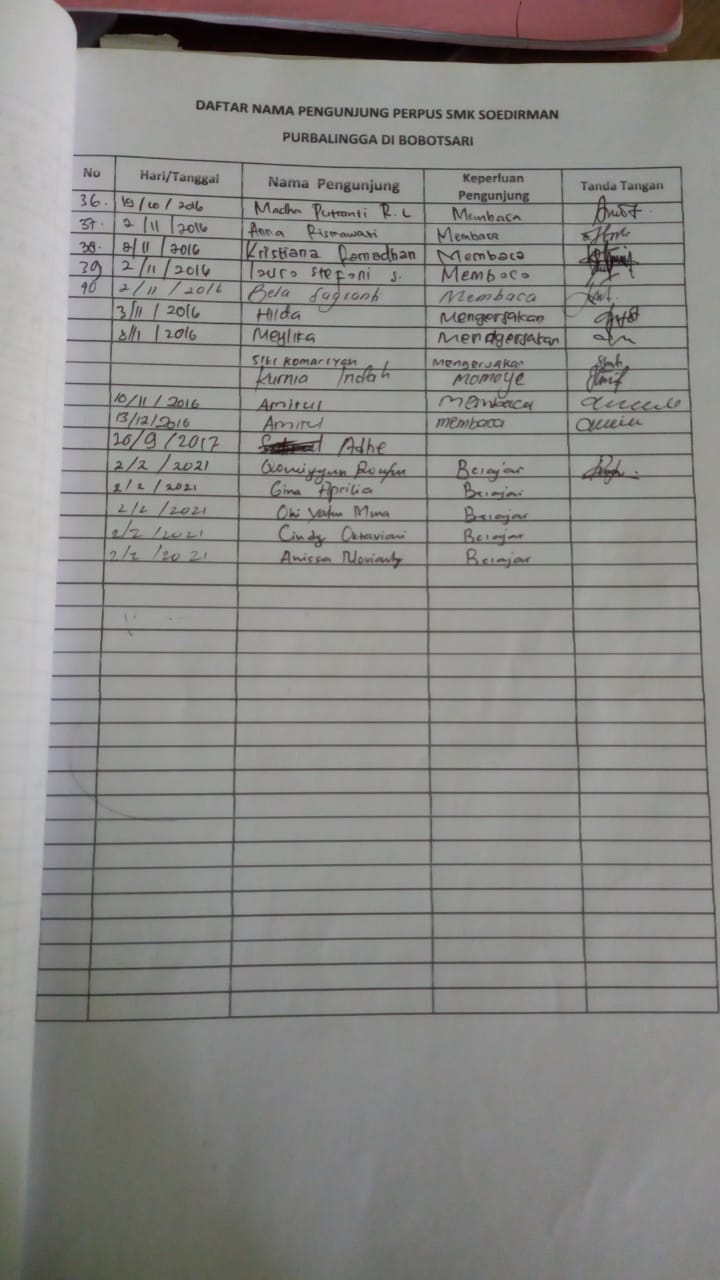 DAFTAR NAMA PENGUNJUNG PERPUS SMK SOEDIRMAN
PURBALINGGA DI BOBOTSARI
No Hari/Tanggal Nama Pengunjung Keperluan Pengunjung Tanda Tangan
36. 19/10/2016 Madha Putranti R.L Membaca
37. 2/11/2016 Anna Rismawati Membaca
38. 2/11/2016 Kristiana Ramadhan Membaca
39 2/11/2016 Membaca
40 2/11/2016 Bela Membaca
3/11/2016 Hilda Mengerjakan
8/11/2016 Meylita
Siti Komariyah Mengerjakan
Kurnia Indah
10/11/2016 Amirul Membaca
13/12/2016 Amirul membaca
26/9/2017 Adhe
2/2/2021 Belajar
2/2/2021 Gina Aprilia Belajar
2/2/2021 Belajar
2/2/2021 Cindy Oktaviani Belajar
2/2/2021 Anissa Belajar